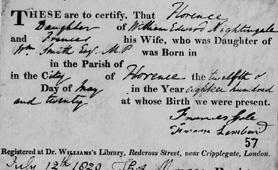 THESE are to certify, That Florence
Daughter of William Edward Nightingale
and Frances his Wife, who was Daughter of
Wm Smith Esqr. M.P was Born in
in the Parish of
in the City of Florence the twelfth of
Day of May in the Year eighteen hundred
and twenty at whose Birth we were present.
Frances
57
Registered at Dr. WILLIAMS's Library, Redcross Street, near Cripplegate, London.
July 12th 1820